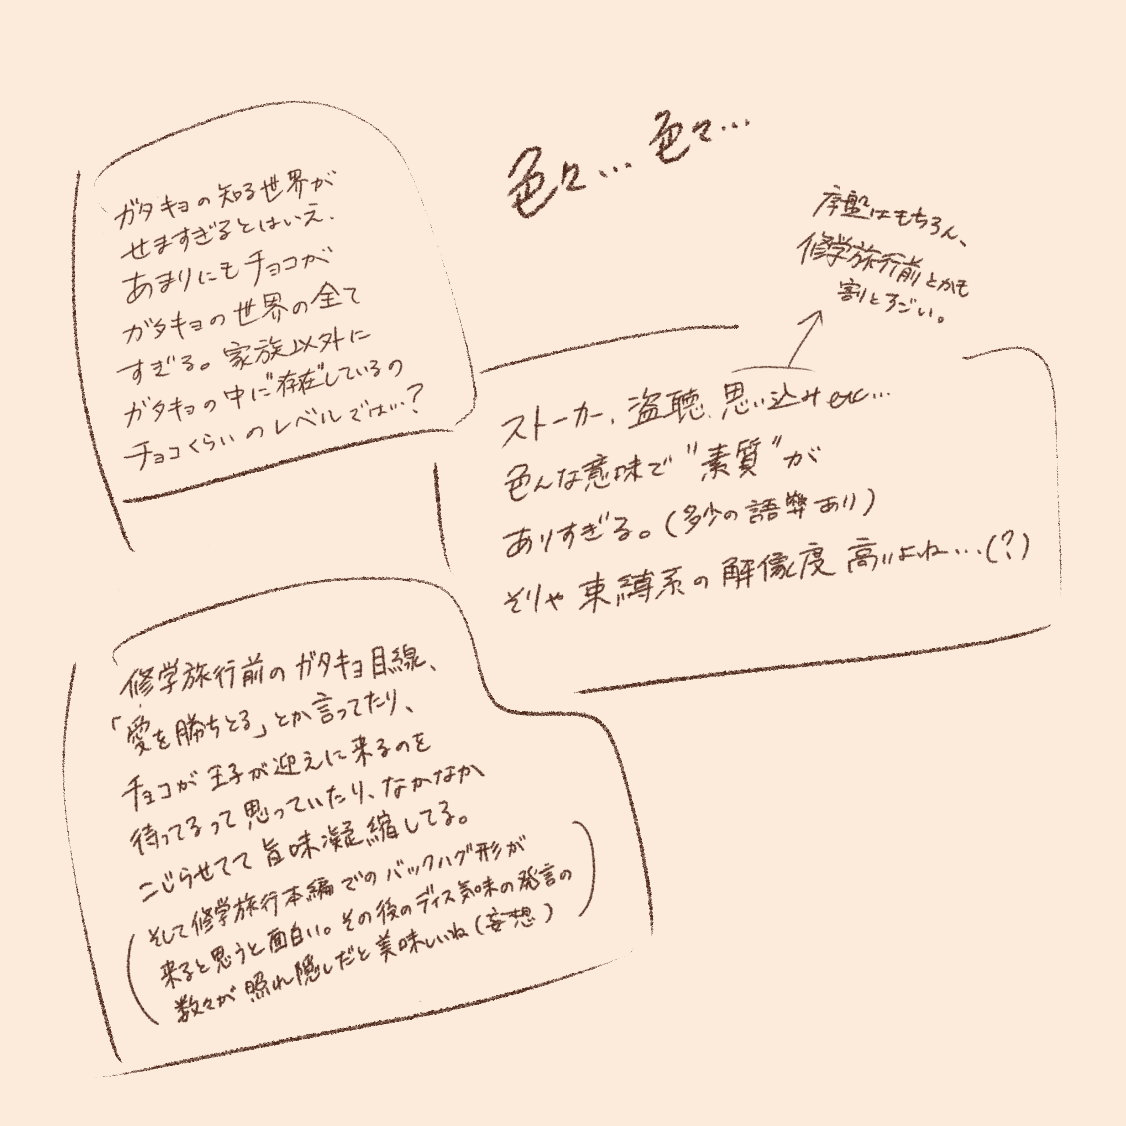 色々… 色々…
ガタキョの知る世界が
せますぎるとはいえ、
あまりにもチョコが
ガタキョの世界の全て
すぎる。家族以外に
ガタキョの中に"存在"しているの
チョコくらいのレベルでは…?
序盤はもちろん、
修学旅行前とかも
割とすごい。
ストーカー、盗聴、思い込み etc…
色んな意味で"素質"が
ありすぎる。(多少の語弊あり)
そりゃ束縛系の解像度高いよね…(?)
修学旅行前のガタキョ目線、
「愛を勝ちとる」とか言ってたり、
チョコが王子が迎えに来るのを
待ってるって思っていたり、なかなか
こじらせてて旨味凝縮してる。
(そして修学旅行本編でのバックハグ形が
来ると思うと面白い。その後のディス気味の発言の
数々が照れ隠しだと美味しいね(妄想))